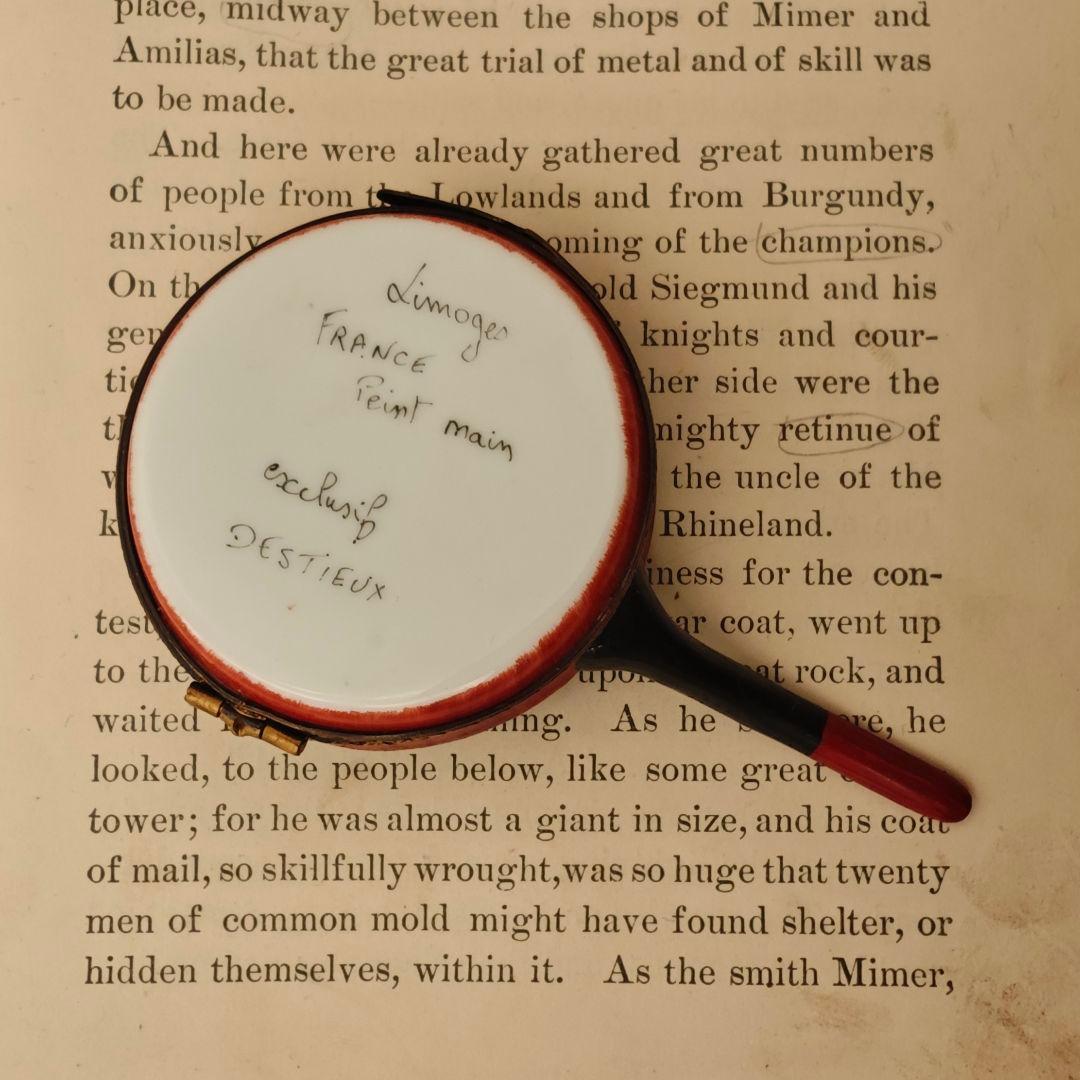 place, midway between the shops of Mimer and
Amilias, that the great trial of metal and of skill was
to be made.
And here were already gathered great numbers
of people from the Lowlands and from Burgundy,
anxiously coming of the champions.
On old Siegmund and his
knights and cour-
side were the
mighty retinue of
the uncle of the
Rhineland.
for the con-
coat, went up
to the rock, and
waited As he he
looked, to the people below, like some great
tower; for he was almost a giant in size, and his coat
of mail, so skillfully wrought, was so huge that twenty
men of common mold might have found shelter, or
hidden themselves, within it. As the smith Mimer,
Limoges
FRANCE
Peint main
exclusif
DESTIEUX